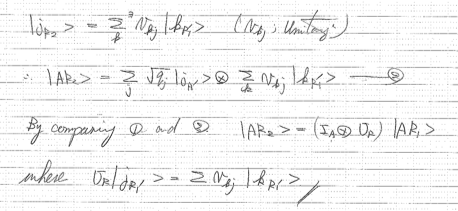 |j_{R_2}> = Σ_k v_{kj} |k_{R_1'}> (v_{kj}; Unitary)
∴ |AR_2> = Σ_j √q_j |j_A'> ⊗ Σ_k v_{kj} |k_{R_1'}> — ②
By comparing ① and ② |AR_2> = (I_A ⊗ U_R) |AR_1>
where U_R |j_{R_1'}> = Σ v_{kj} |k_{R_1'}>